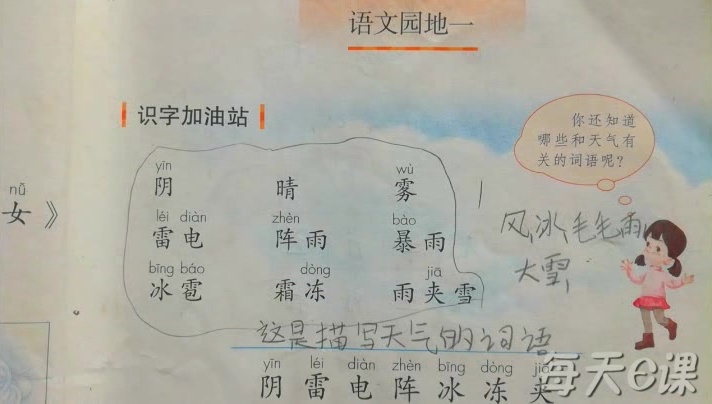 语文园地一
识字加油站
你还知道
哪些和天气有
关的词语呢？
yīn wù
阴 晴 雾
nǚ
女》
léi diàn zhèn bào
雷电 阵雨 暴雨
风,冰,毛毛雨,
大雪,
bīng báo dòng jiā
冰雹 霜冻 雨夹雪
这是描写天气的词语
yīn léi diàn zhèn bīng dòng jiā
阴 雷 电 阵 冰 冻 夹
每天e课